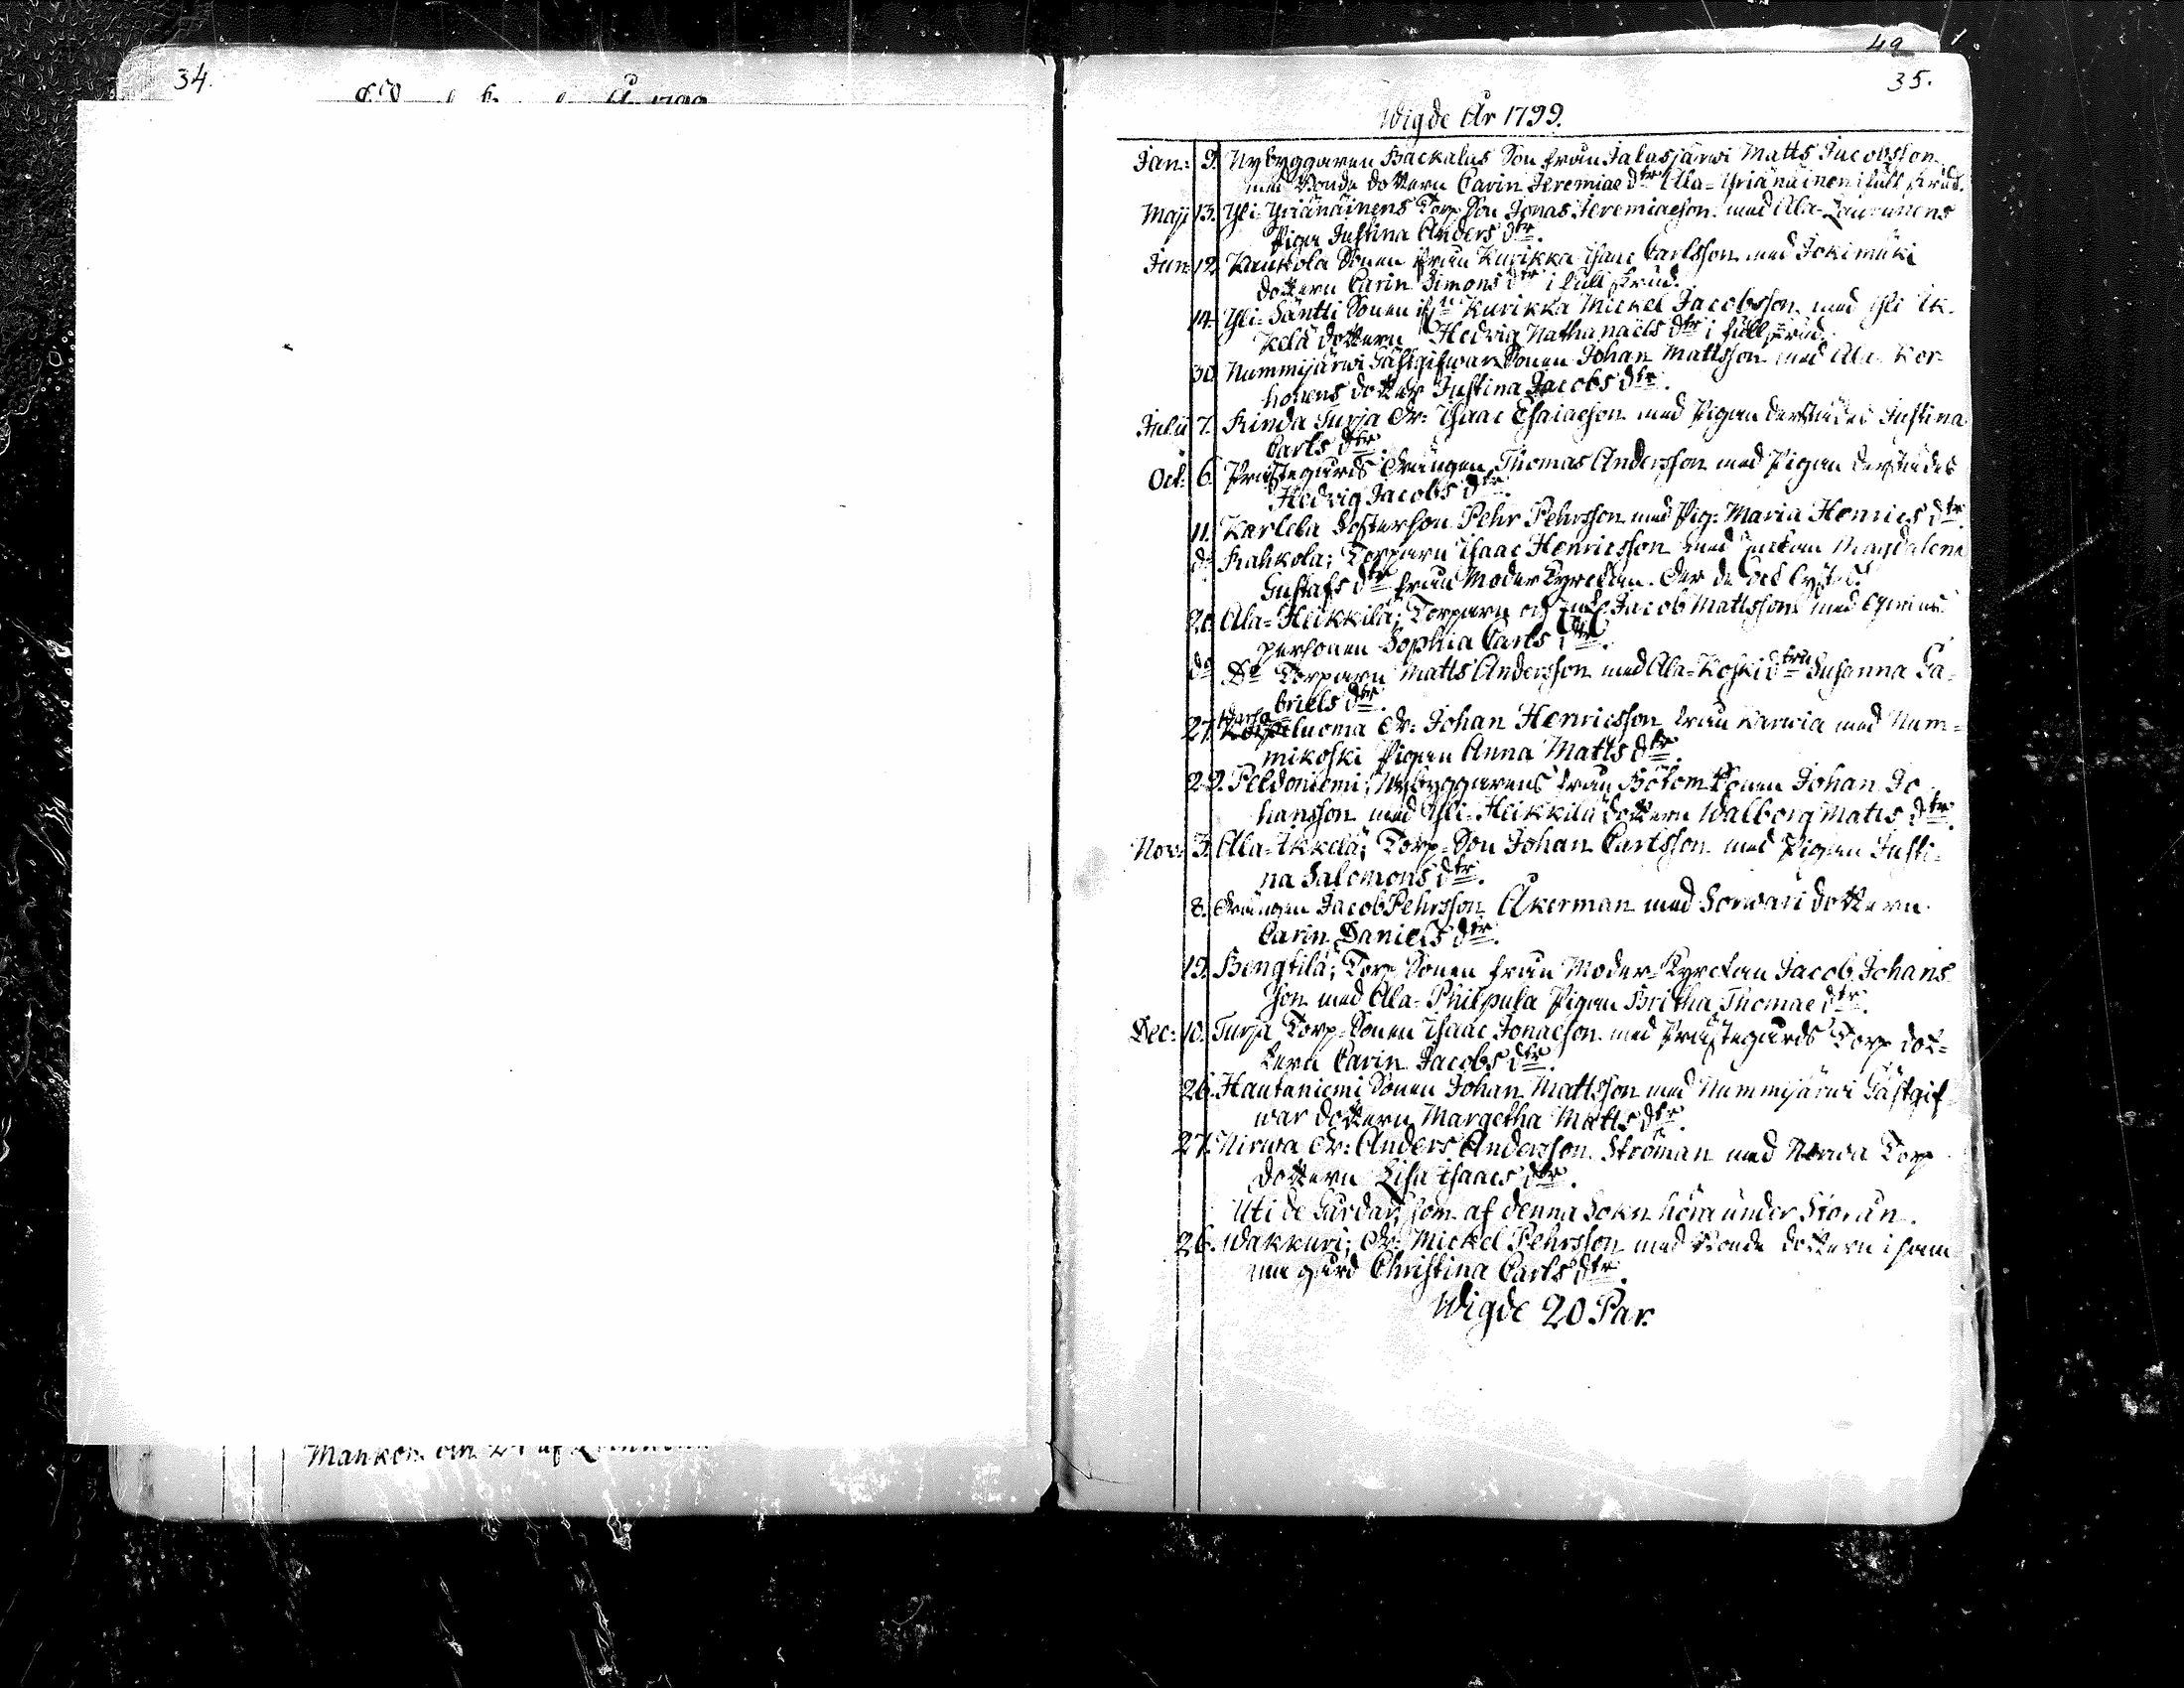 34.
49
35.
Wigde År 1799.
Jan: 9. Nybyggaren Backalas Son från Jalasjärwi Matts Jacobsson
med Bonde dottern Carin Jeremiae dtr Ala-Yriänäinen i full skrud.
Maji 13. Yli-Yriänäinens Torp Son Jonas Jeremiaeson med Ala-Laurunens
Piga Justina Anders dtr.
Jun: 12. Kaukola Sonen från Kurikka Isaac Carlsson med Jokimäki
dottern Carin Simons dtr i full skrud.
14. Yli-Säntti Sonen ifrn Kurikka Mickel Jacobsson med Yli Ik-
kelä dottern Hedvig Nathanaels dtr i full skrud.
30. Nummijärwi Gästgifwar Sonen Johan Mattsson med Ala-Kor-
honens dotter Justina Jacobs dtr.
Julii 7. Rinda Turja Dr: Isaac Esaiaeson med Pigan dersteds Justina
Carls dtr.
Oct: 6. Prästegårds Drängen Thomas Andersson med Pigan dersteds
Hedvig Jacobs dtr.
11. Karlela Systerson Pehr Pehrsson med Pig: Maria Henrics dtr.
do Rahkola; Torparn Isaac Henricsson med Enkan Magdalena
Gustafs dtr från Moder Kyrckan. der de ock lystes.
20. Ala-Heikkilä; Torparn och Enkl. Jacob Mattsson med
personen Sophia Carls dtr.
do Do Torparn Matts Andersson med Ala-Koski dtrn Susanna Ga-
briels dtr.
27. luoma Dr: Johan Henricsson från Karwia med Num-
mikoski Pigan Anna Matts dtr.
29. Peldoniemi; Nybyggarens från Bötom Sonen Johan Jo-
hansson med Yli-Heikkilä dottern Walborg Matts dtr.
Nov: 3. Ala-Ikkelä; Torp-Son Johan Carlsson med Pigan Justi-
na Salomons dtr.
8. Drängen Jacob Pehrsson Åkerman med Sorwari dottern
Carin Daniels dtr.
19. Bengtilä; Torp Sonen från Moder-Kyrckan Jacob Johans
son med Ala-Philpula Pigan Britha Thomae dtr.
Dec: 10. Turja Torp-Sonen Isaac Jonaeson med Prästegårds Torp dot-
tern Carin Jacobs dtr.
26. Hautaniemi Sonen Johan Mattsson med Nummijärwi Gästgif
war dottern Margetha Matts dtr.
27. Nirwa Dr: Anders Andersson Ströman med Norwa Torp
dottern Lisa Isaacs dtr.
Uti de Gårdar, som af denna Sokn höra under Storån.
26. Wakkuri; Dr: Mickel Pehrsson med Bonde dottern i sam
ma gård Christina Carls dtr.
Wigde 20 Par.